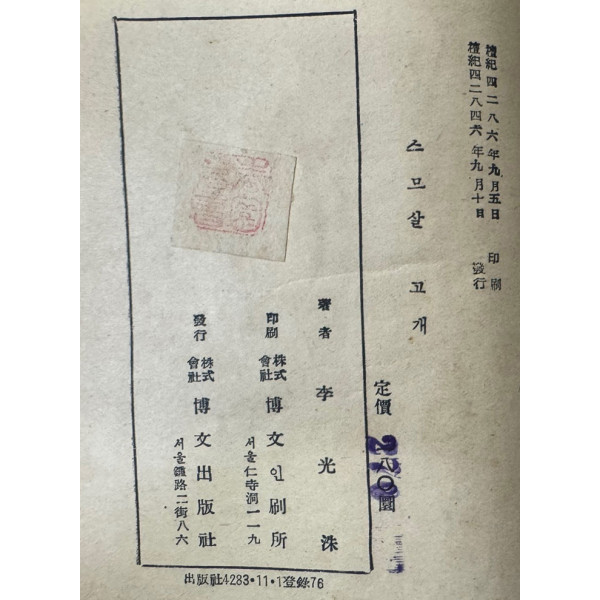 檀紀四二八六年九月五日 印刷
檀紀四二八六年九月十日 發行
스므살 고개
定價 圜
著者 李光洙
印刷 株式會社 博文인刷所
서울仁寺洞一一九
發行 株式會社 博文出版社
서울鍾路二街八六
出版社4283·11·1登錄76